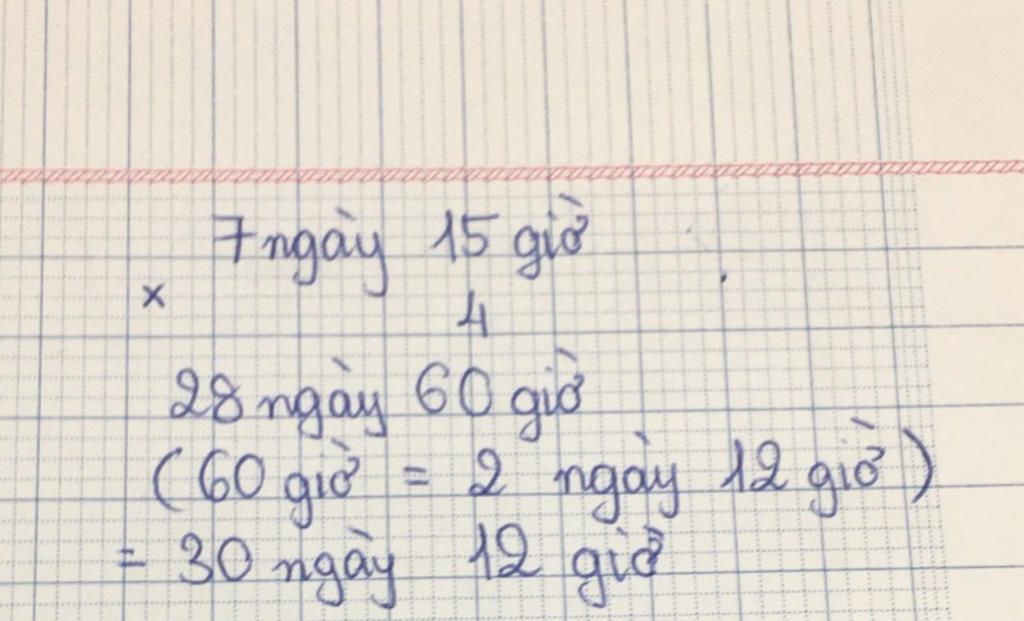 7 ngày 15 giờ
×
4
28 ngày 60 giờ
(60 giờ = 2 ngày 12 giờ)
= 30 ngày 12 giờ